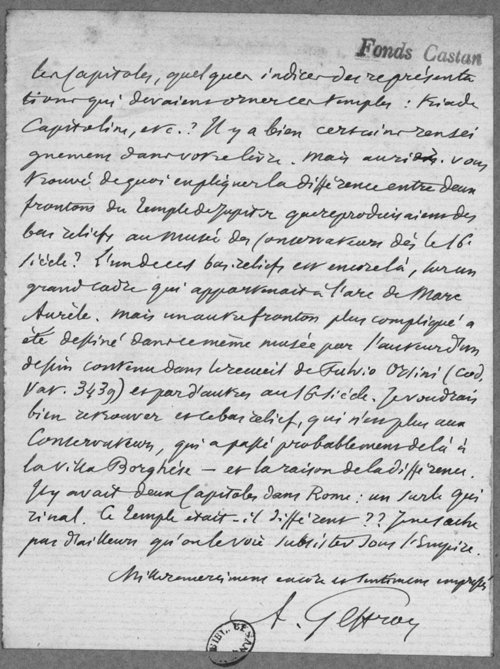 Fonds Castan
les Capitoles, quelques indices des représenta
tions qui devaient orner ces temples : triade
Capitoline, etc. ? Il y a bien certains rensei
gnements dans votre livre. Mais auriez-vous
trouvé de quoi expliquer la différence entre deux
frontons du temple de Jupiter que reproduisaient des
bas reliefs au musée des Conservateurs dès le 16e
siècle ? L'un de ces bas reliefs est encore là, sur un
grand cadre qui appartenait à l'arc de Marc
Aurèle. Mais un autre fronton plus compliqué a
été dessiné dans ce même musée par l'auteur d'un
dessin contenu dans le recueil de Fulvio Orsini (Cod.
Vat. 3439) et par d'autres au 16e siècle. Je voudrais
bien retrouver et ce bas relief, qui n'est plus aux
Conservateurs, qui a passé probablement de là à
la villa Borghèse — et la raison de la différence.
Il y avait deux Capitoles dans Rome : un sur le Qui
rinal. Ce temple était-il différent ?? Je ne sache
pas d'ailleurs qu'on le voie subsister sous l'Empire.
Mille remerciements encore et sentiments empressés
A. Geffroy
BIBL. BESAN